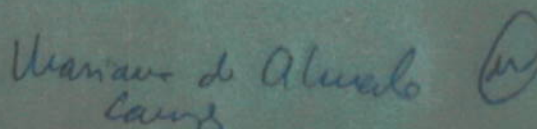 Mariana de Almeida
Campos